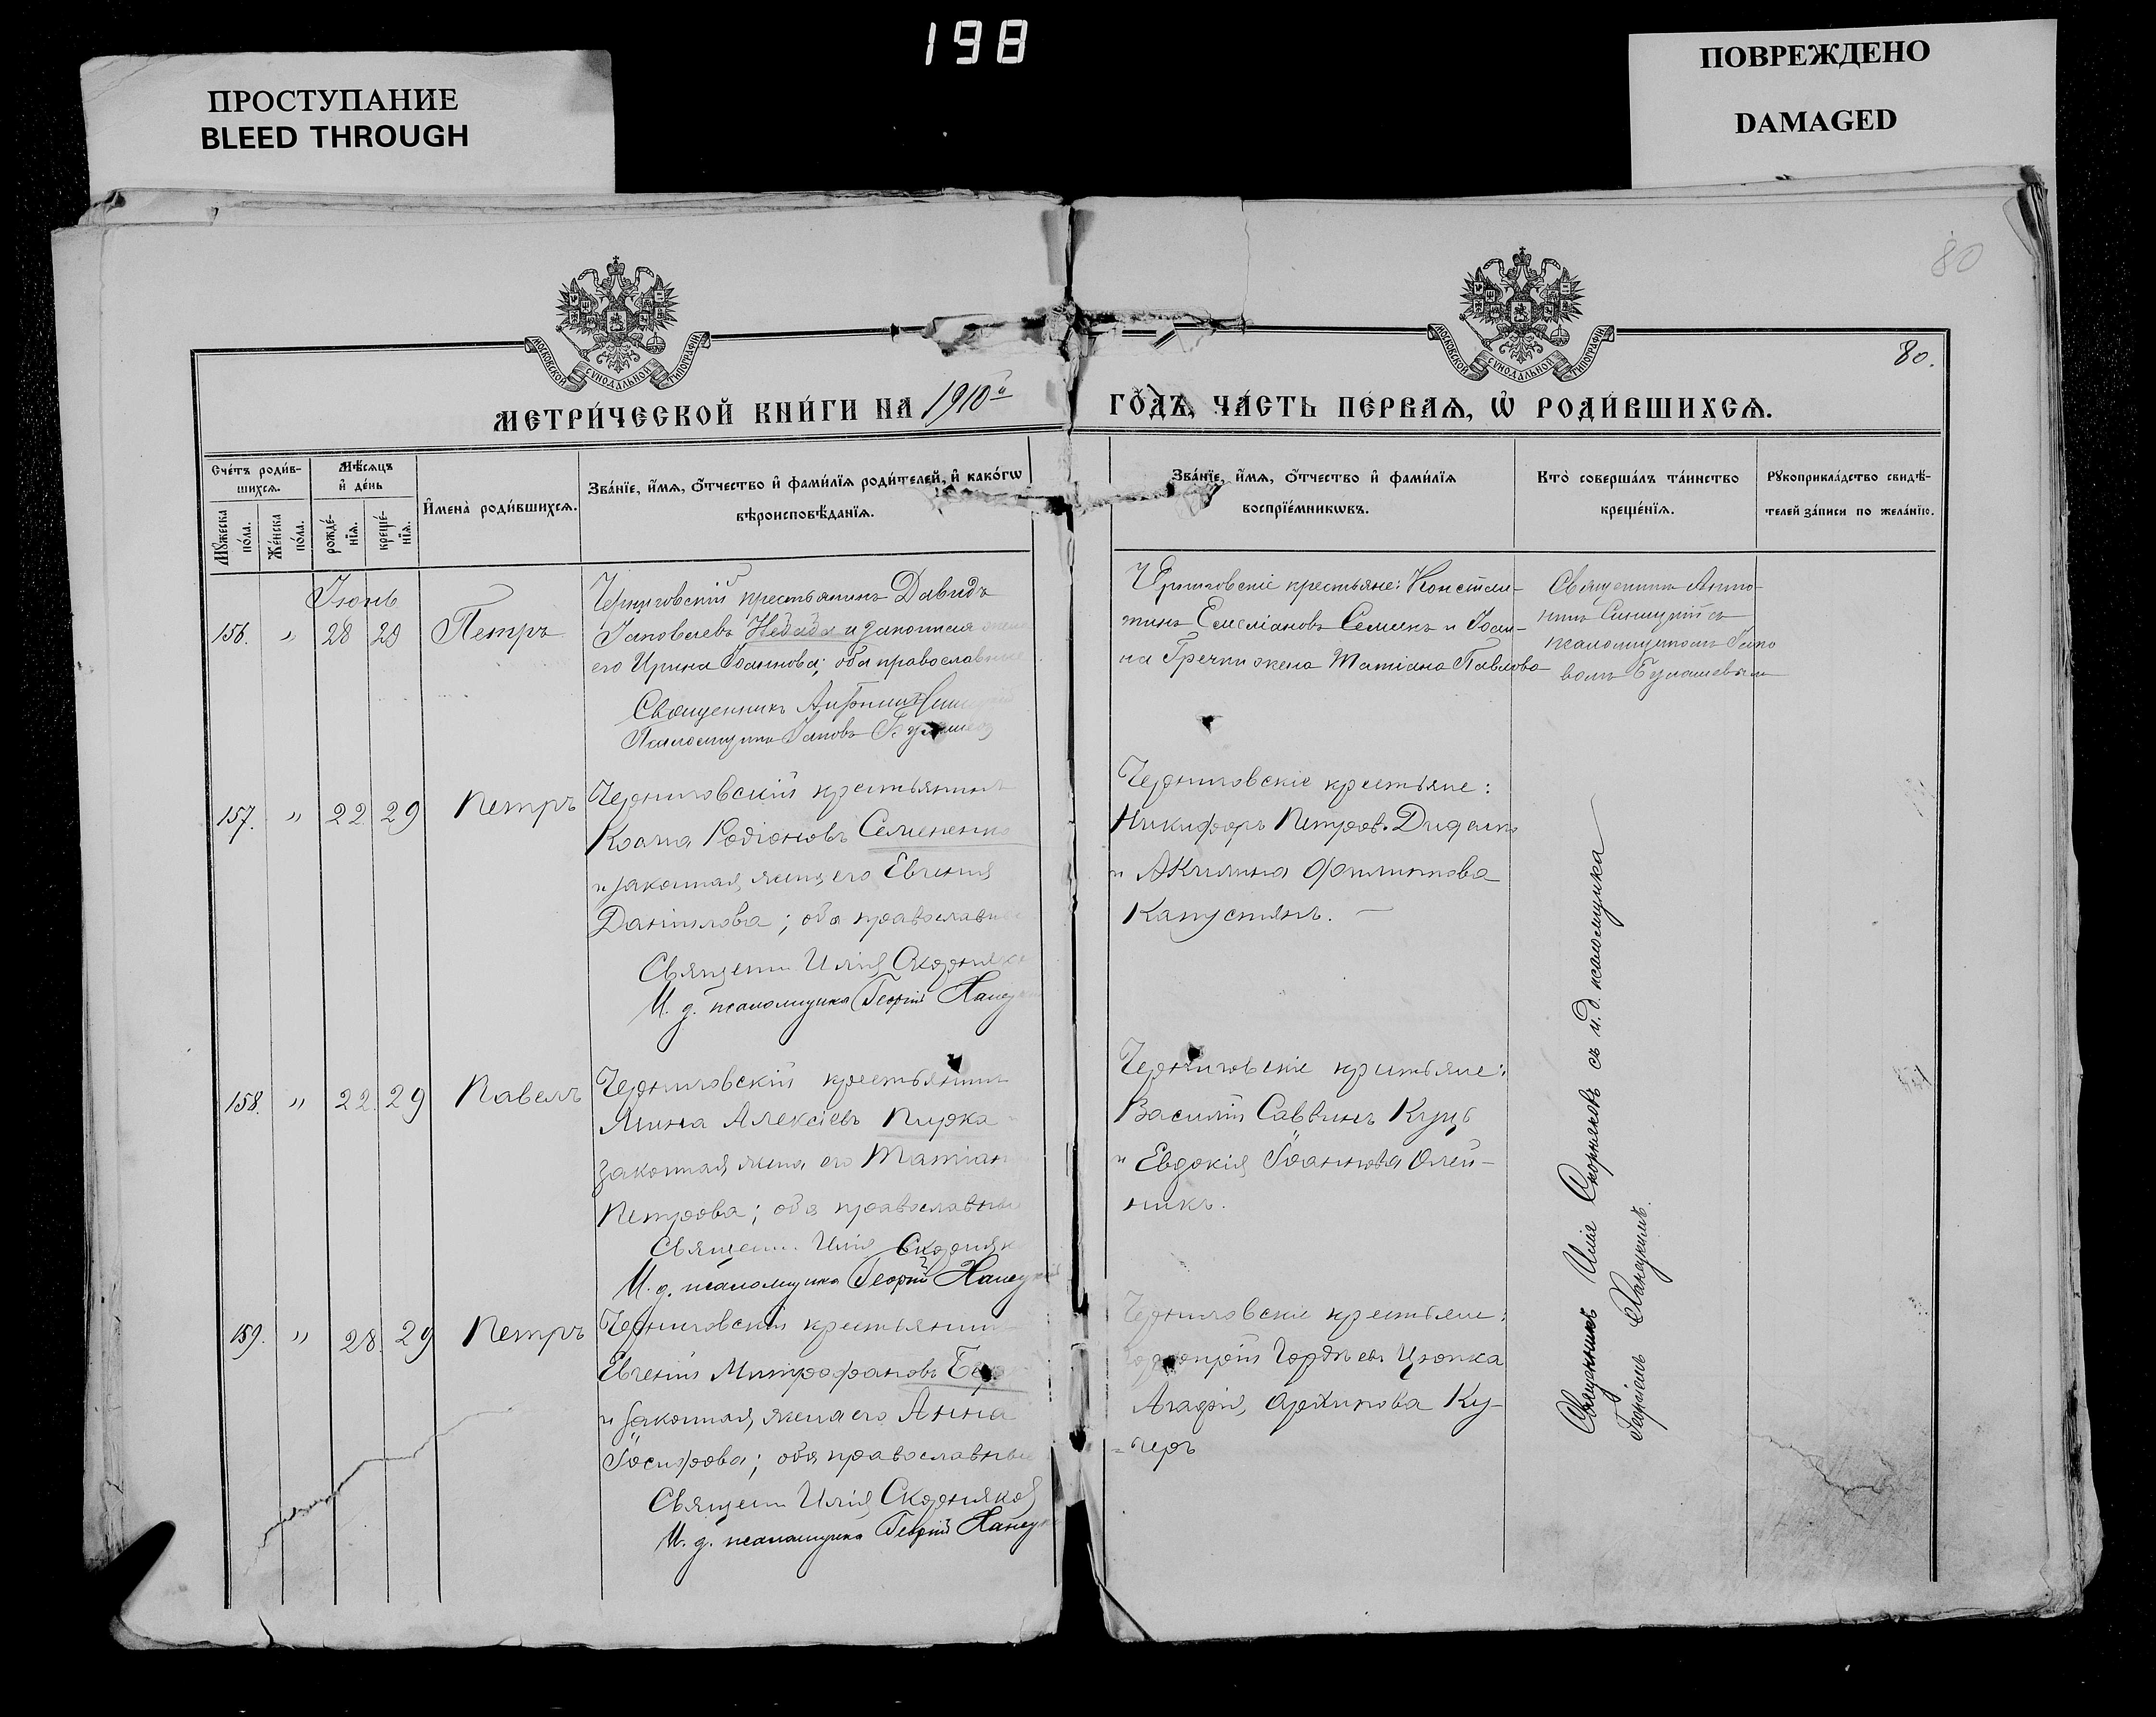 198
ПРОСТУПАНИЕ
BLEED THROUGH
ПОВРЕЖДЕНО
DAMAGED
80
80.
МОСКОВСКОЙ СѴНОДАЛЬНОЙ ТИПОГРАФІИ
МОСКОВСКОЙ СѴНОДАЛЬНОЙ ТИПОГРАФІИ
МЕТРИ́ЧЕСКОЙ КНИ́ГИ НА 1910й ГО́ДЪ, ЧА́СТЬ ПЕ́РВАѦ, Ѽ РОДИ́ВШИХСѦ.
Сче́тъ роди́в-
шихсѧ.
Мѣ́сѧцъ
и҆ де́нь
Мꙋ́жеска
по́ла.
Же́нска
по́ла.
рожде́-
нїѧ.
креще́-
нїѧ.
И҆мена̀ роди́вшихсѧ.
Зва́нїе, и҆́мѧ, ѻ҆́тчество и҆ фами́лїѧ роди́телей, и҆ како́гѡ
вѣроисповѣ́данїѧ.
Зва́нїе, и҆́мѧ, ѻ҆́тчество и҆ фами́лїѧ
воспрїе́мникѡвъ.
Кто̀ соверша́лъ та́инство
креще́нїѧ.
Рꙋкоприкла́дство свидѣ́-
телей за́писи по жела́нїю.
Іюнь
156. " 28 29 Петръ
Черниговскій крестьянинъ Давидъ
Іаковлевъ и законная жена
его Ирина Іоаннова; оба православные
Священникъ Антоній
Псаломщикъ Іаковъ
Черниговскіе крестьяне: Констан-
тинъ Емеліановъ Семакъ и Іоан-
на Гречки жена Татіана Павлова
Священникъ Анто-
ній Синицкій съ
псаломщикомъ Іако
вомъ
157. " 22 29 Петръ
Черниговскій крестьянинъ
Косма Родіоновъ Семененко
и законная жена его Евгенія
Даніилова; оба православные
Священн. Илія Скорняков
И. д. псаломщика Георгій
Черниговскіе крестьяне:
Никифоръ Петровъ Диденко
и Акилина Филиппова
Капустянъ. —
158. " 22 29 Павелъ
Черниговскій крестьянинъ
Мина Алексіевъ Пирка
законная жена его Татіана
Петрова; оба православные
Священн. Илія Скорняк
И. д. псаломщика Георгій
Черниговскіе крестьяне:
Василій Саввинъ Куць
и Евдокія Іоаннова Олей-
никъ.
159. " 28. 29 Петръ
Черниговскій крестьянинъ
Евгеній Митрофановъ
и законная жена его Анна
Іосифова; оба православные
Священн Илія Скорняков
И. д. псаломщика Георгій
Черниговскіе крестьяне:
Гордѣевъ Цюпка
Агафія Архипова Ку-
-черъ
Священникъ Илія Скорняковъ съ и. д. псаломщика
Георгіемъ